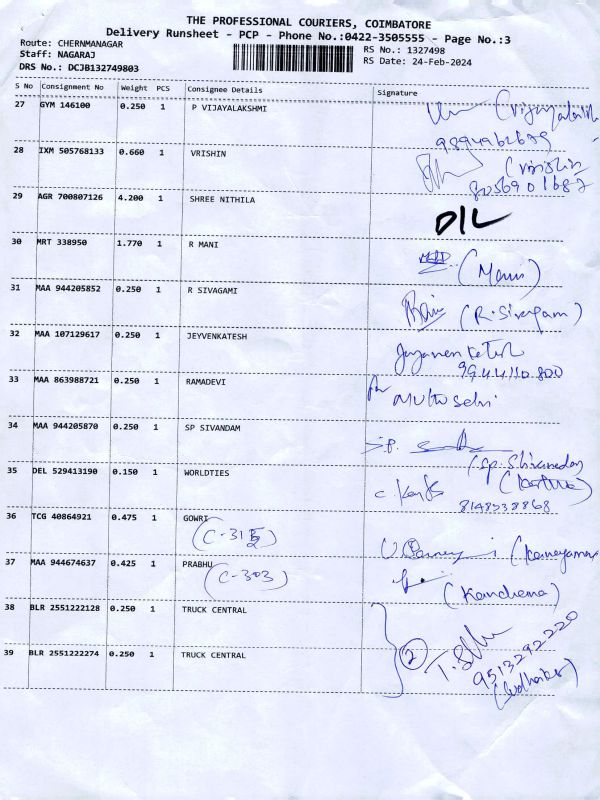 THE PROFESSIONAL COURIERS, COIMBATORE
Delivery Runsheet - PCP - Phone No.:0422-3505555 - Page No.:3
Route: CHERNMANAGAR
RS No.: 1327498
Staff: NAGARAJ
RS Date: 24-Feb-2024
DRS No.: DCJB132749803
S No Consignment No Weight PCS Consignee Details Signature
27 GYM 146100 0.250 1 P VIJAYALAKSHMI
28 IXM 505768133 0.660 1 VRISHIN
8056901687
29 AGR 700807126 4.200 1 SHREE NITHILA
D/L
30 MRT 338950 1.770 1 R MANI
(Mani)
31 MAA 944205852 0.250 1 R SIVAGAMI
(R. Sivagami)
32 MAA 107129617 0.250 1 JEYVENKATESH
9944110800
33 MAA 863988721 0.250 1 RAMADEVI
34 MAA 944205870 0.250 1 SP SIVANDAM
35 DEL 529413190 0.150 1 WORLDTIES
8148538868
36 TCG 40864921 0.475 1 GOWRI
37 MAA 944674637 0.425 1 PRABHU
(C-303)
(Kanchena)
38 BLR 2551222128 0.250 1 TRUCK CENTRAL
2
9513292220
39 BLR 2551222274 0.250 1 TRUCK CENTRAL